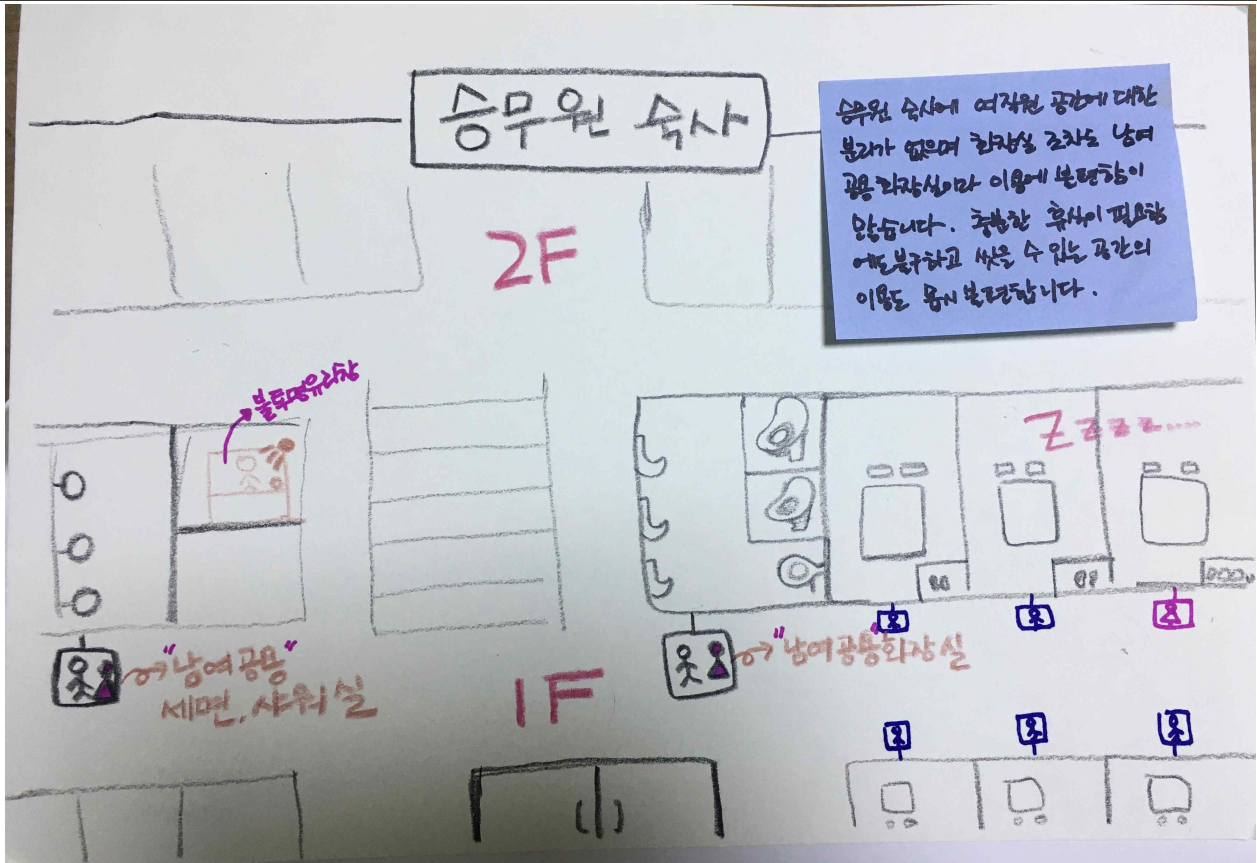 승무원 숙사
승무원 숙사에 여직원 공간에 대한
분리가 없으며 화장실 조차도 남여
공용화장실이라 이용에 불편함이
많습니다. 충분한 휴식이 필요함
에도불구하고 씻을 수 있는 공간의
이용도 몹시 불편합니다.
2F
불투명유리창
Zzzzz.....
"남여공용"
세면, 샤워실
"남여공용"화장실
1F